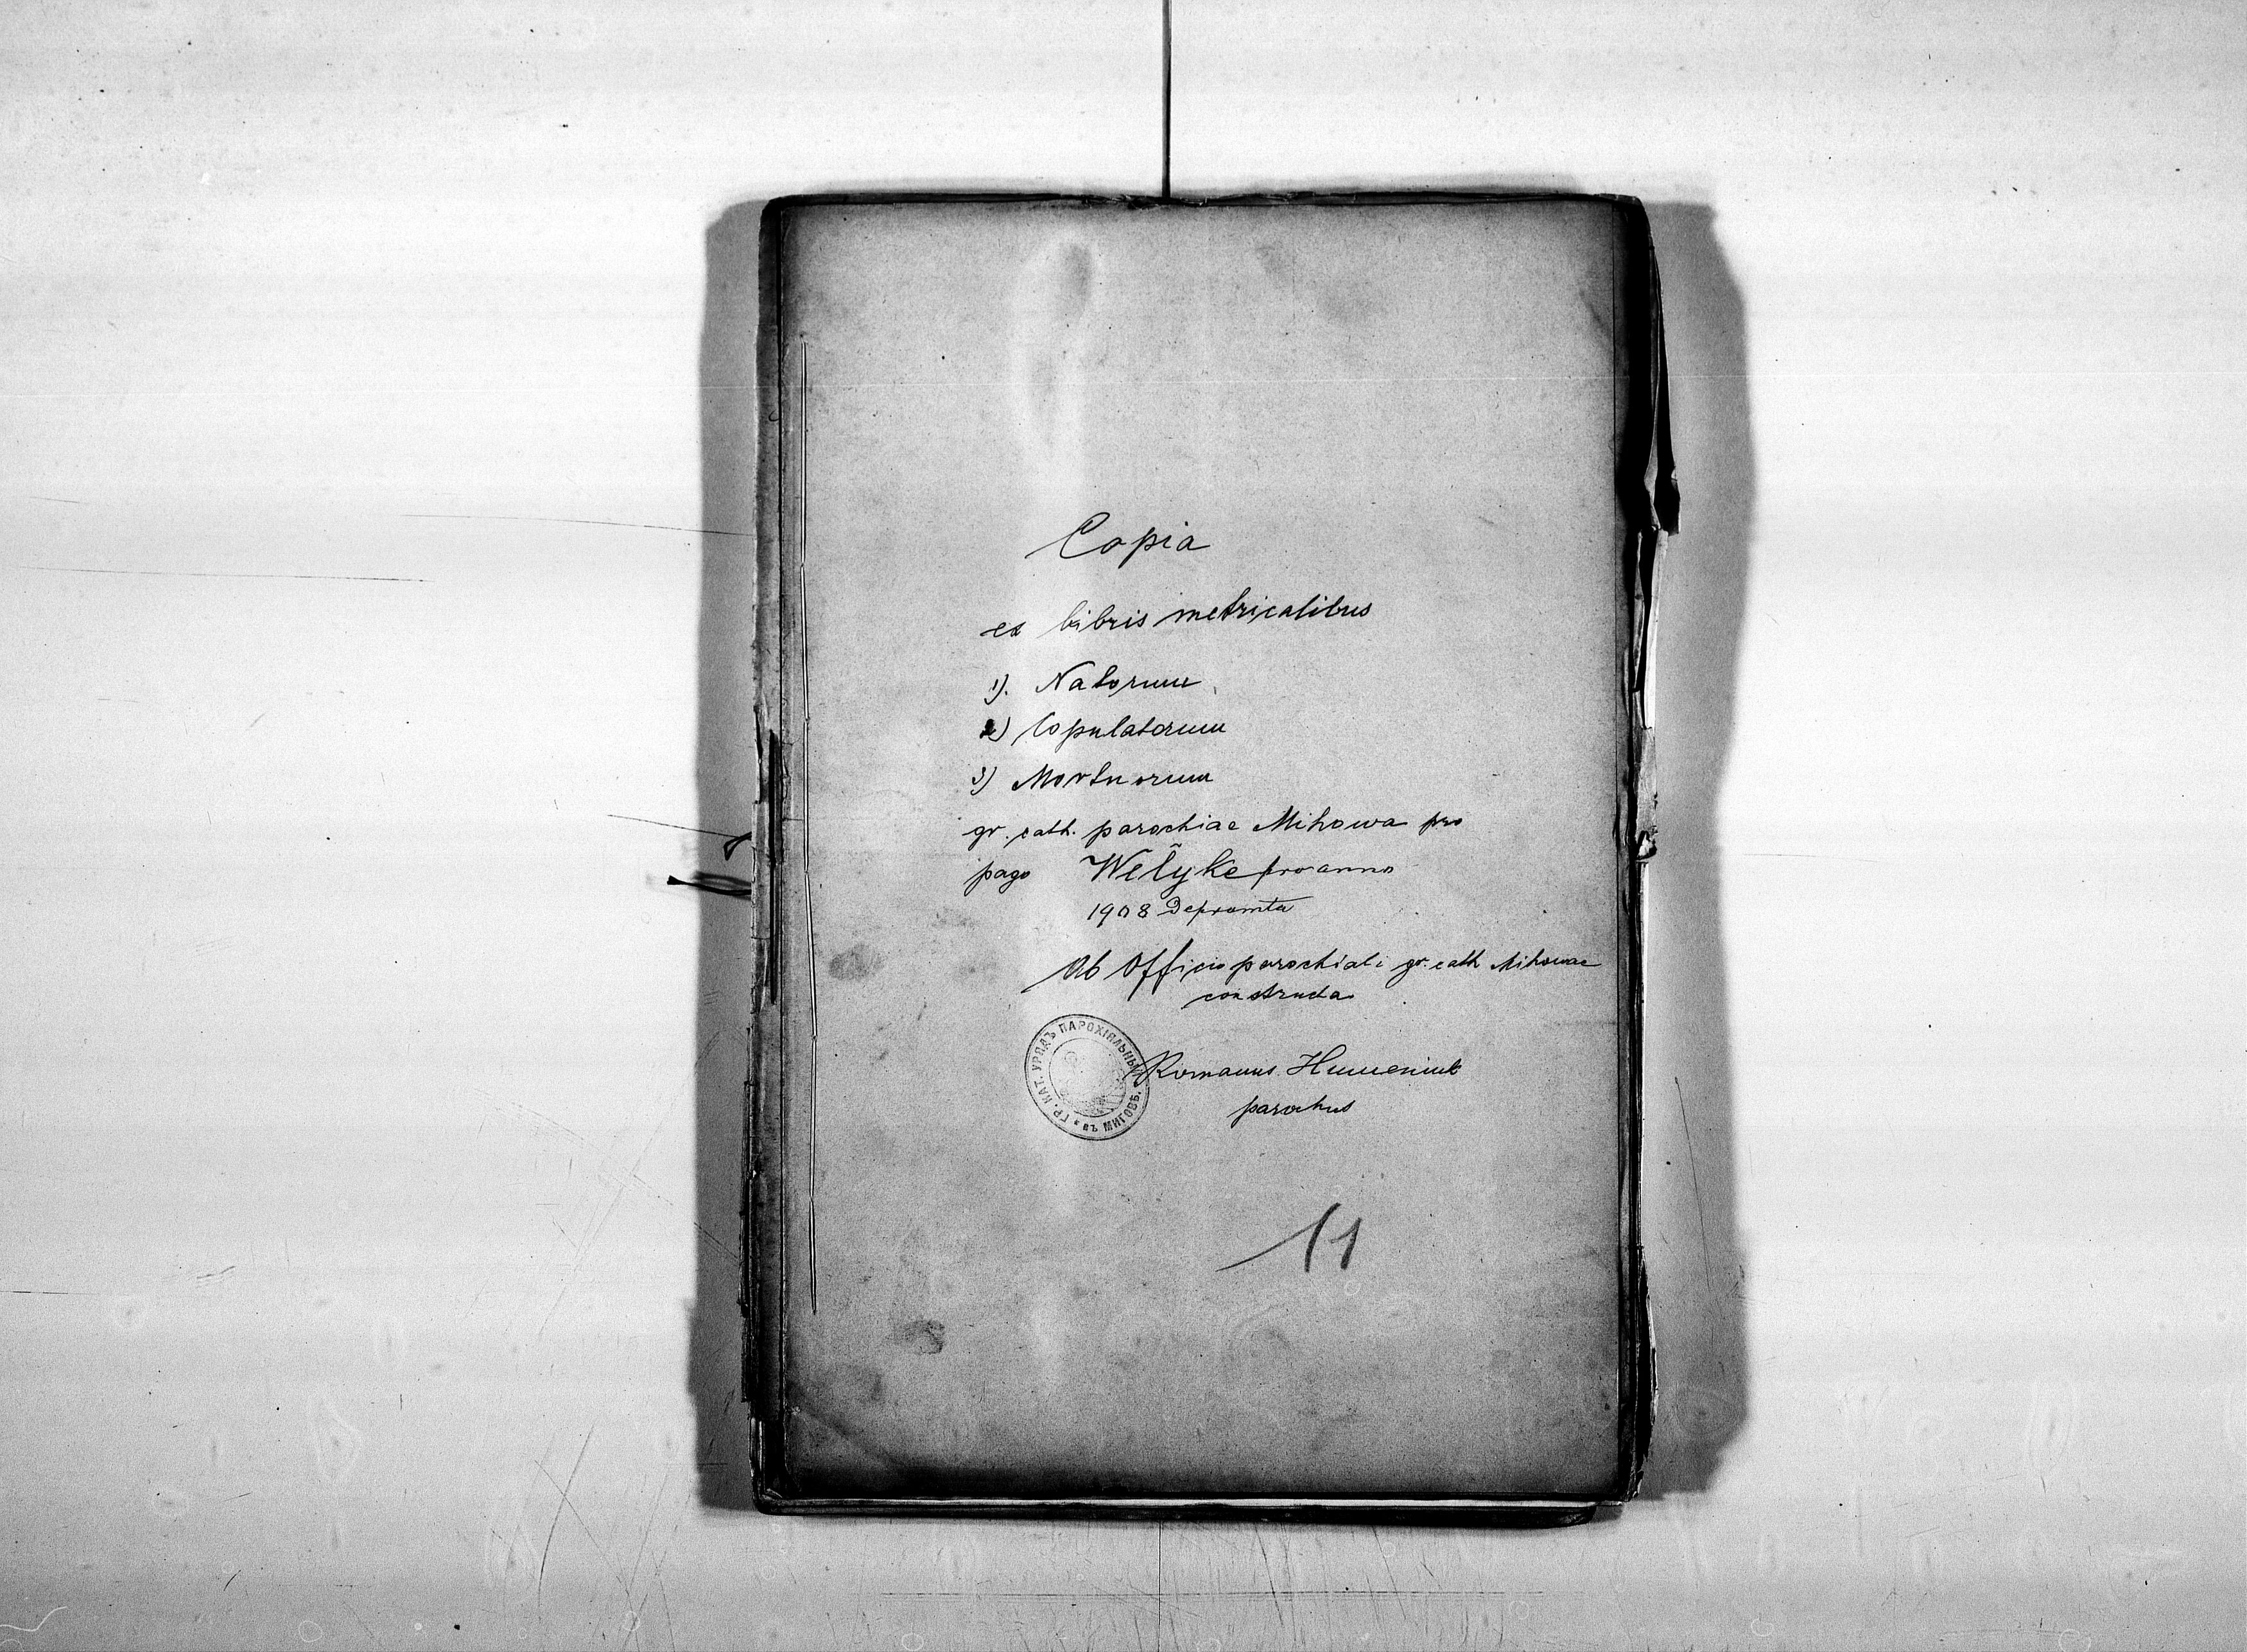 Copia
ex libris metricalibus
1). Natorum
2) Copulatorum
3) Mortuorum
gr. cath. parochiae Mihowa pro
pago Wełyke pro anno
1908 Depromta
Ab Officio parochiali gr. cath Mihowae
constructa
ГР. КАТ. УРЯДЪ ПАРОХІЯЛЬНЫЙ въ МИГОВѢ.
Romanus Humeniuk
parochus
11